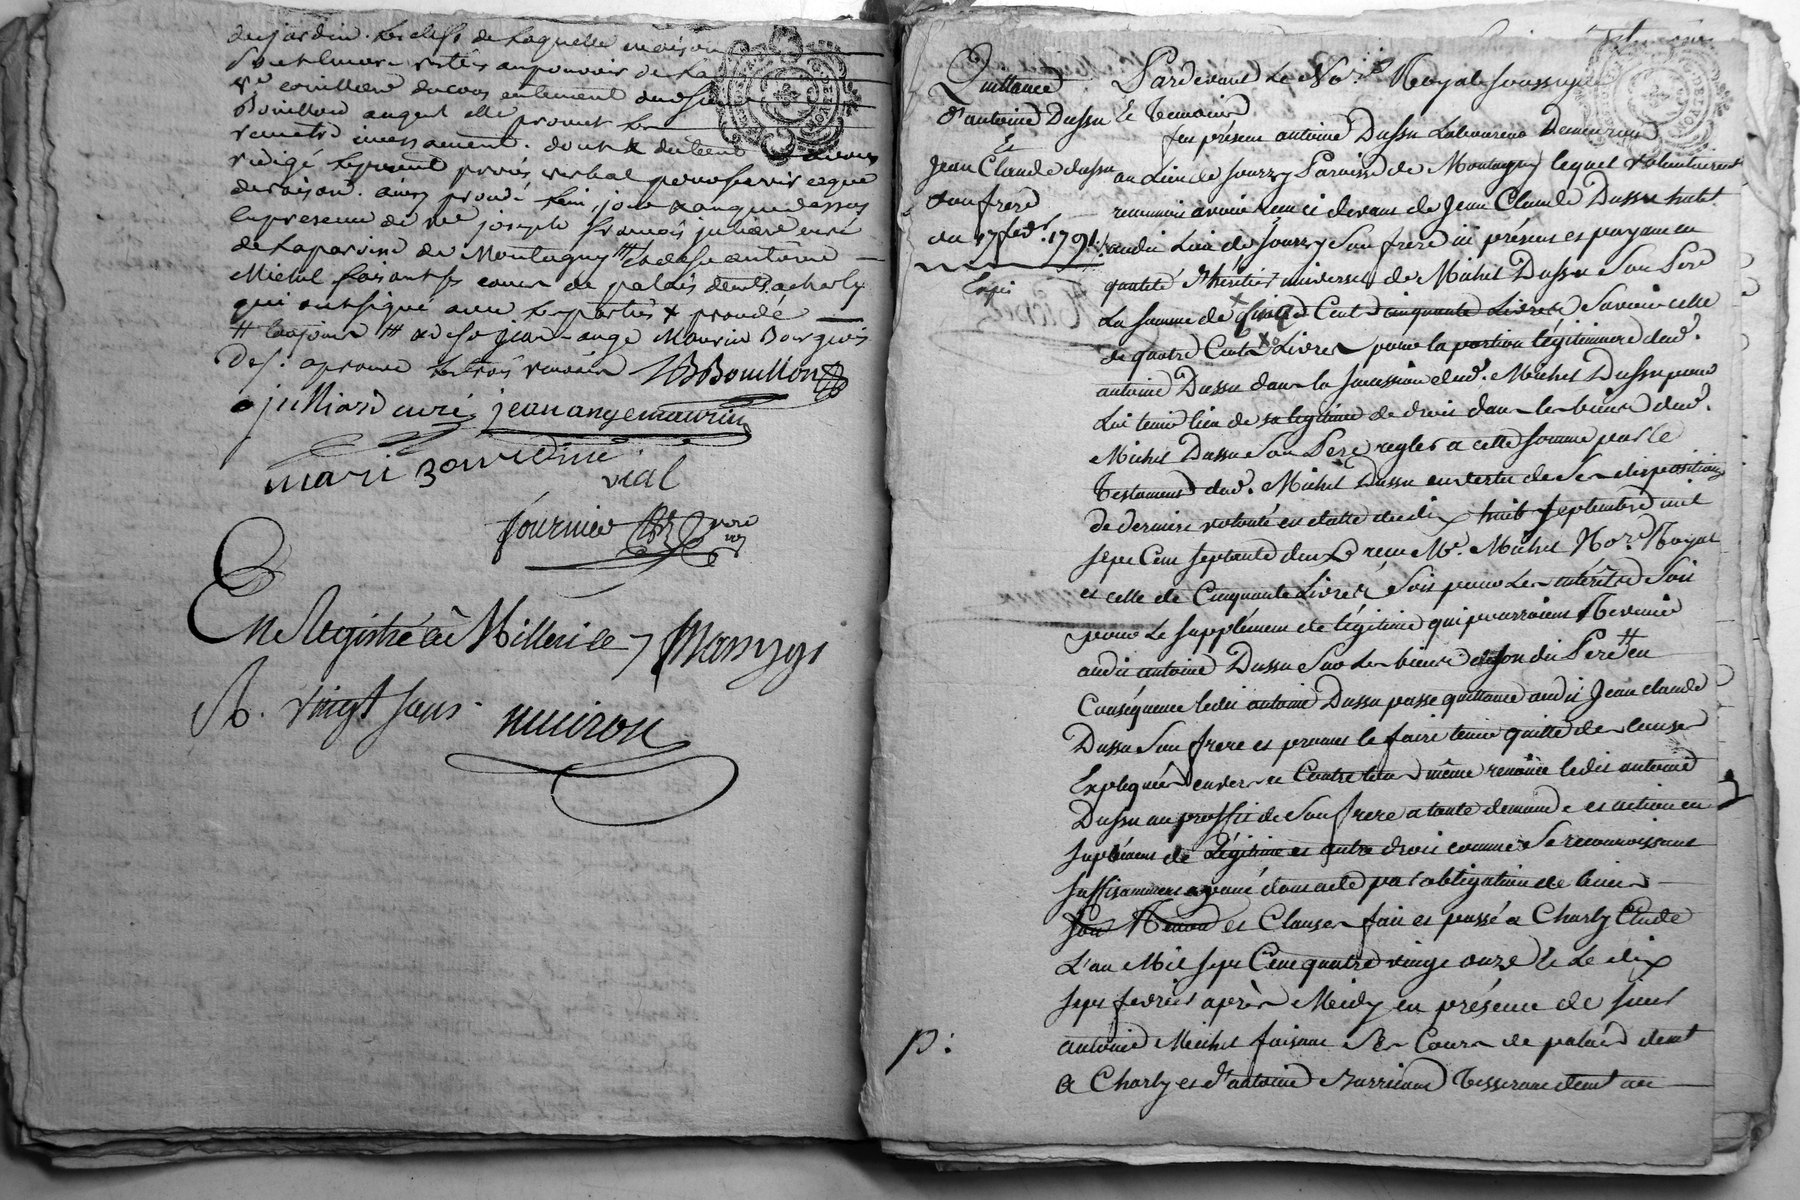 du jardin. les clefs de laquelle maison
sont lieux restés au pouvoir de la
ve couillou du consentement dud sr
Bouillon auquel elle promet les
remettre incessament. dont &
redigé le present procès verbal pour servir ce que
de raison. ainsi procédé les an, jour & an que dessus
En presence de Me joseph françois juliard curé
de la paroisse de Montagny # et de sr antoine
Michel faisant ses cours de palais demt a charly
qui ont signé avec les parties & procédé
# toujours # & de sr jean-ange Maurin Bourgeois
approuvé les trois renvois NBBouillon
julliard curé jean ange maurin
mari
vial
fournier
En Registré à Millerÿ le 7 Mars 1791
R. vingt sous
Quittance
d'antoine Dussu
Et
Jean Claude dussu
son frere
du 17 fevr. 1791.
Expé
Pardevant Le Nore Royal soussigné
Et Temoins
fut présent antoine Dussu Laboureur Demeurant
au Lieu de sourzy Paroisse de Montagny lequel volontairement
reconnoit avoir reçu ci devant de Jean Claude Dussu habt
audit Lieu de sourzy son frere ici présent et payant en
qualité d'héritier universel de Michel Dussu son Pere
La somme de Cent cinquante Livres Savoir celle
de quatre Cents Livres pour la portion légitimaire dud.
antoine Dussu dans la succession dud. Michel Dussu pour
Lui tenir lieu de sa legitime de droit dans les biens dud.
Michel Dussu son Pere reglés a cette somme par le
Testament dud. Michel Dussu en vertu de ses dispositions
de derniere volonté en datte du dix huit septembre mil
sept Cent septante deux reçu Me. Michel Nore Royal
et celle de Cinquante Livres soit pour Les intérêts soit
pour Le supplément de légitime qui pourroient Revenir
audit antoine Dussu sur Les biens de son dit Pere # en
Conséquence ledit antoine Dussu passe quittance audit Jean claude
Dussu son frere et promet le faire tenir quitte des causes
Expliquées envers et Contre tous même renonce ledit antoine
Dussu au proffit de son frere a toute demande et action en
suplément de Légitime et autre droit comme Se reconnoissant
suffisamment payé dont acte par obligation de biens
et Clauses fait et passé a Charly Etude
L'an Mil sept Cent quatre vingt onze & Le dix
sept fevrier après Midy en présence de sieur
antoine Michel faisant Ses Cours de palais demt
a Charly et d'antoine Tisserand demt au
p: